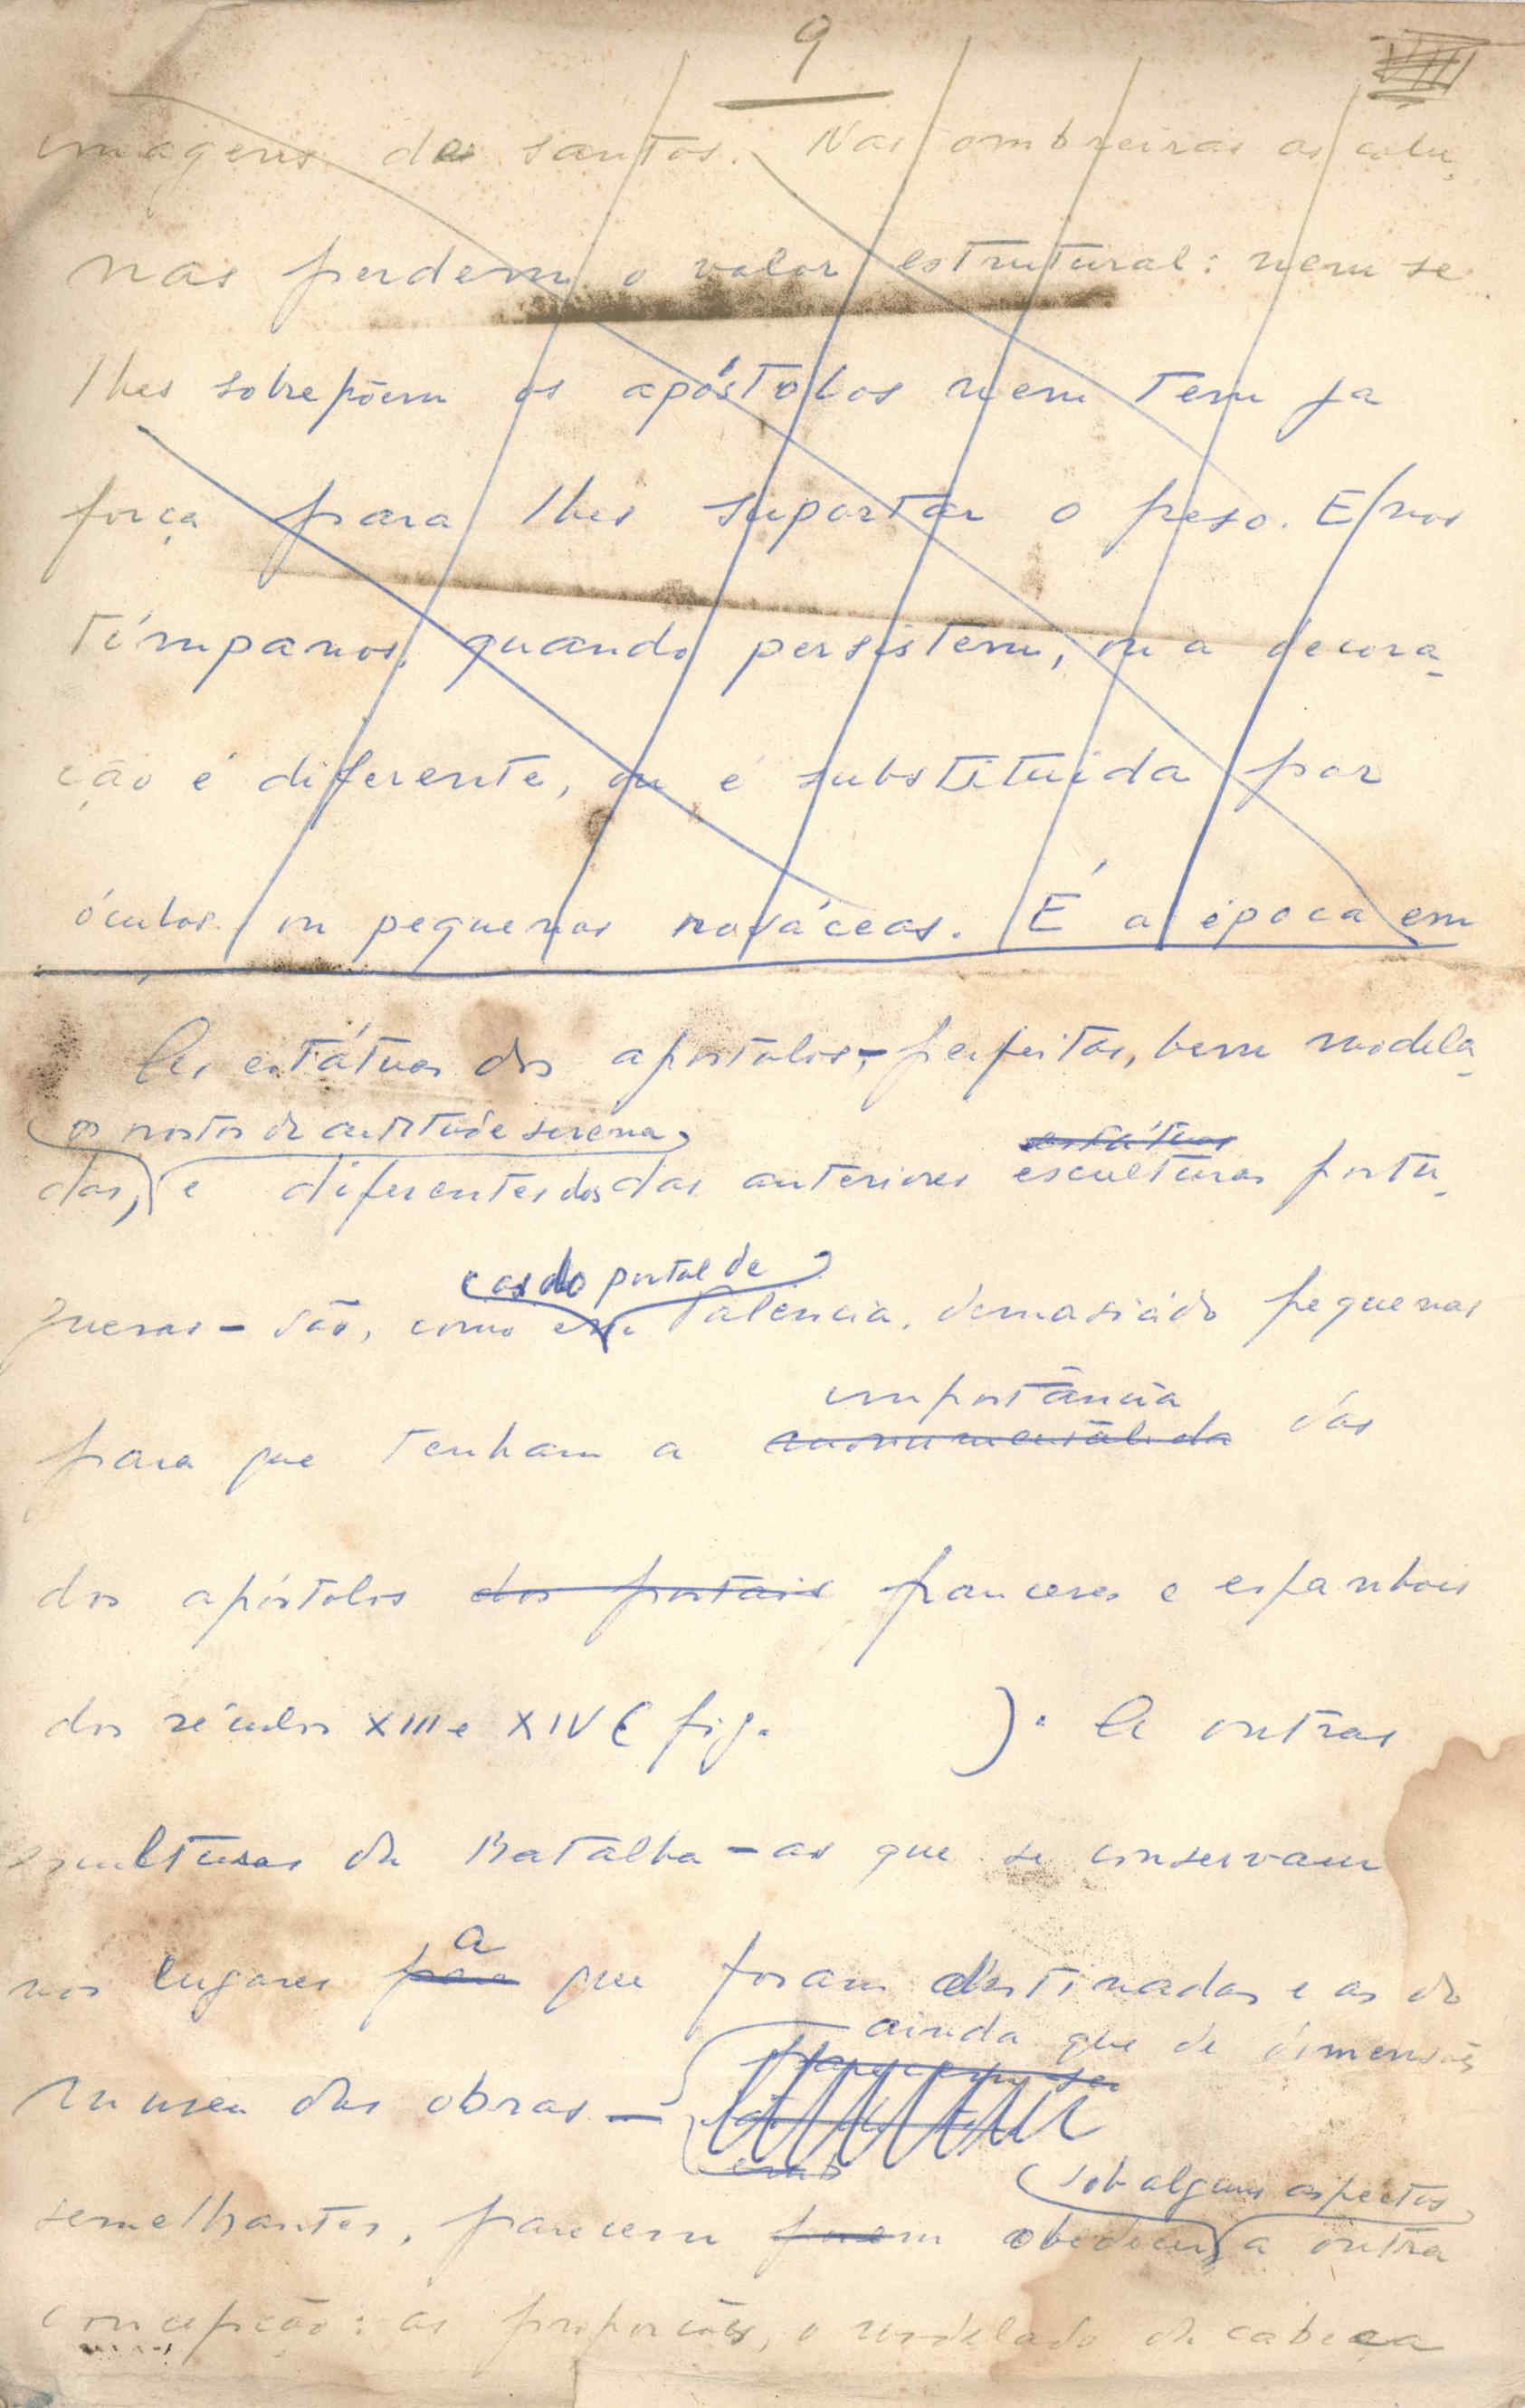 9
imagens de santos. Nas ombreiras as colu-
nas perdem o valor estrutural: nem se
lhes sobrepõem os apóstolos nem tem ja
força para lhes suportar o peso. E nos
tímpanos, quando persistem, ou a decora-
ção é diferente, ou é substituida por
óculos ou pequenas rosáceas. É a época em
As estátuas dos apostolos, - perfeitas, bem modela-
os rostos de actitude serena,
estátuas
das, e diferentes dos das anteriores esculturas portu-
as do portal de
guesas - são, como em Valencia, demasiádo pequenas
importância
para que tenham a monumentalida dás
dos apóstolos dos portais franceses e espanhois
dos séculos XIII e XIV (fig. ). As outras
esculturas da Batalha - as que se conservam
a
nos lugares para que foram destinadas e as do
ainda que de dimensões
museu das obras -
sob alguns aspectos
semelhantes, parecem obedecer a outra
concepção: as proporções, o modelado da cabeça